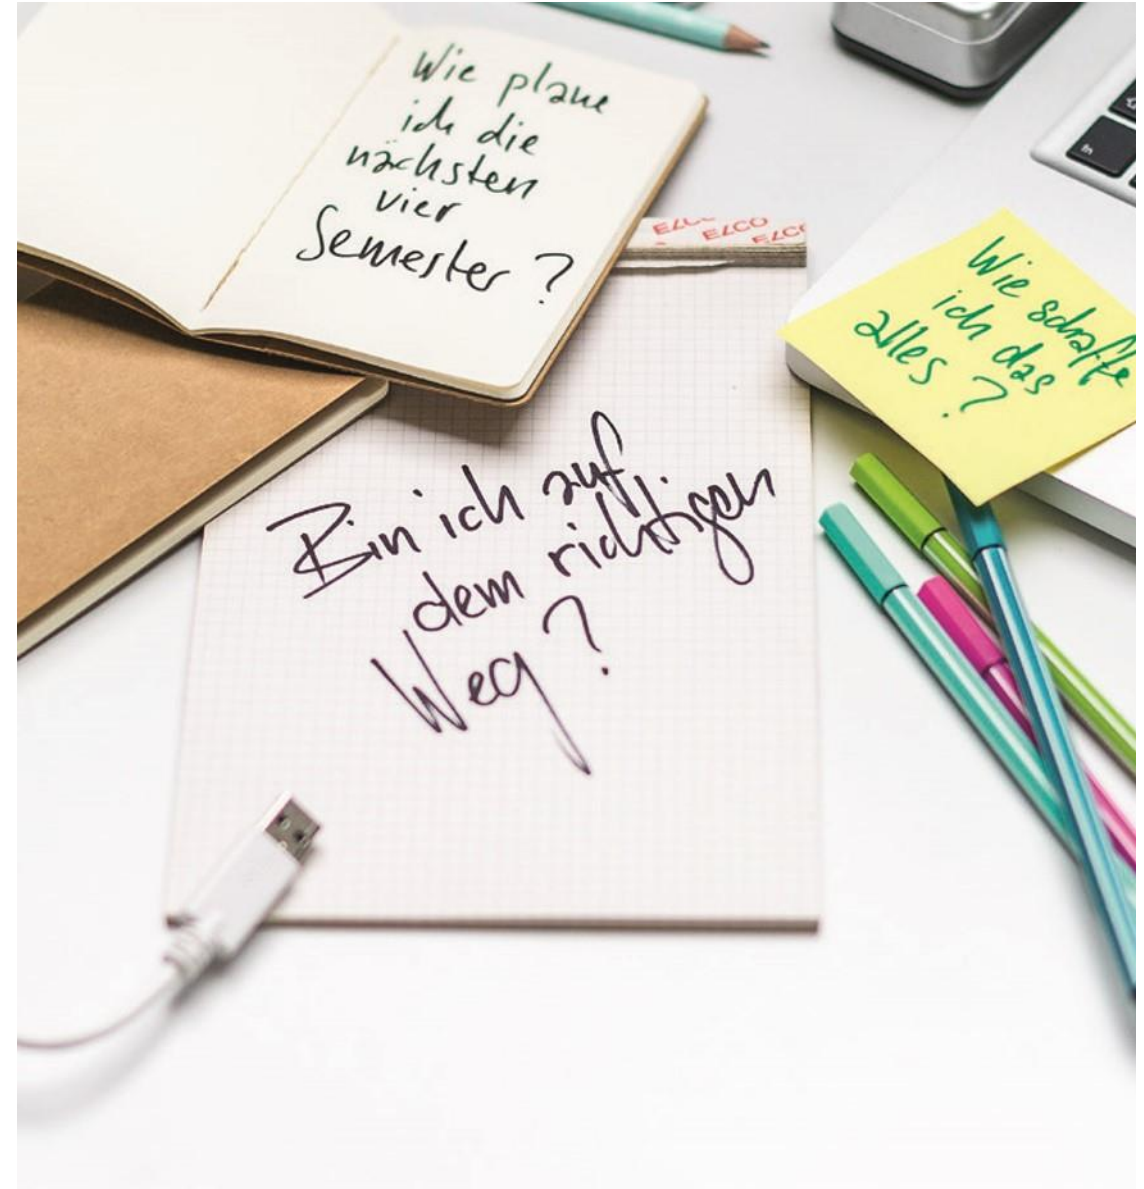 Wie plane
ich die
nächsten
vier
Semester?
ELCO
ELCO
ELCO
Wie schaffe
ich das
alles?
Bin ich auf
dem richtigen
Weg?
fn